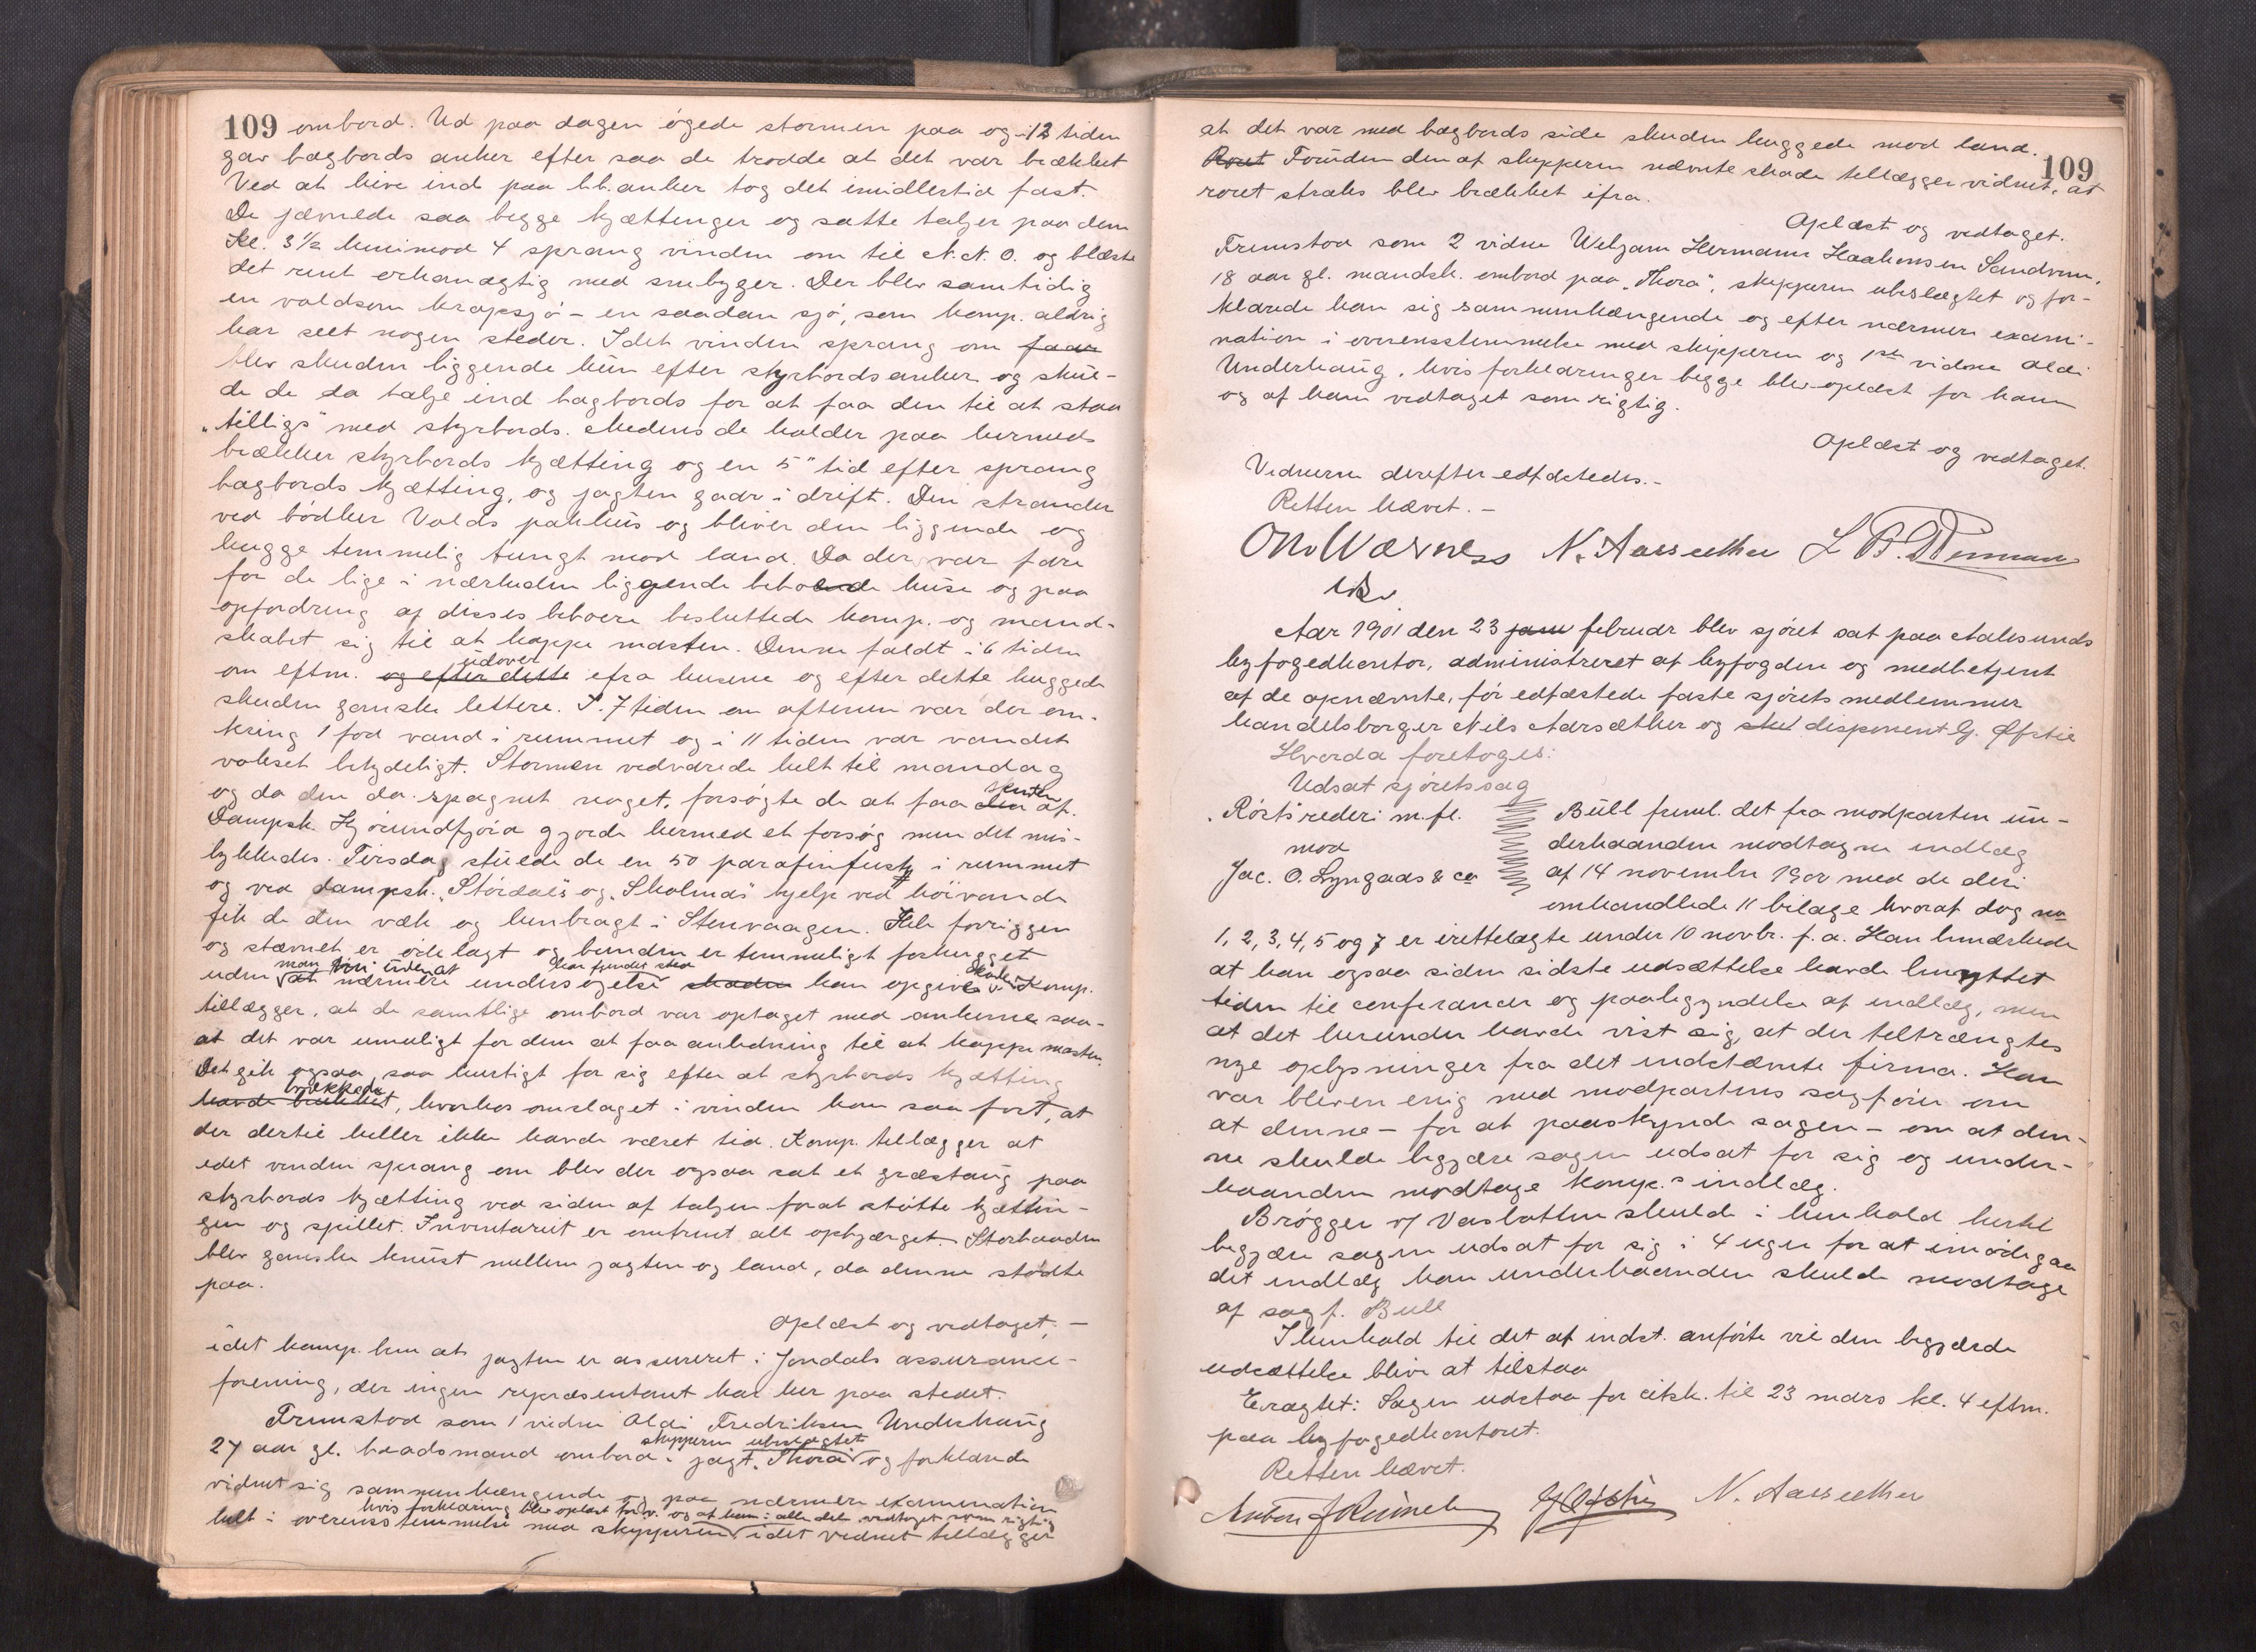 109 ombord. Ud paa dagen øgede stormen paa og i 12 tiden
gav bagbords anker efter saa de trodde at det var brækket
Ved at hive ind paa b.b. anker tog det imidlertid fast.
De jævnede saa begge kjættinger og satte taljer paa dem
Kl. 3 1/2 henimod 4 sprang vinden om til N.N.O. og blæste
det rent orkanagtig med snebyger. Der blev samtidig
en voldsom krapsjø – en saadan sjø, som komp. aldrig
har seet nogen steder. Idet vinden sprang om faar
blev skuden liggende kun efter styrbords anker og skul-
de de da talje ind bagbords for at faa den til at staa
"telligs" med styrbords. Medens de holder paa hermed
brækker styrbords kjætting og en 5" tid efter sprang
bagbords kjætting, og jagten gaar i drift. Den strander
ved bødker Volds pakhus og bliver den liggende og
hugge temmelig tungt mod land. Da der var fare
for de lige i nærheden liggende beboede huse og paa
opfordring af disses beboere besluttede komp. og mand-
skabet sig til at kappe masten. Denne faldt i 6 tiden
udover
om eftm. og efter dette ifra husene og efter dette huggede
skuden ganske lettere. I 7 tiden om aftenen var der om-
kring 1 fod vand i rummet og i 11 tiden var vandet
vokset betydeligt. Stormen vedvarede helt til mandag
skuden
og da den da spagnet noget, forsøgte de at faa den af.
Dampsk. Hjørundfjord gjorde hermed et forsøg men det mis-
lykkedes. Tirsdag stuede de en 50 parafinfustg i rummet
og ved dampsk. "Stordals" og "Skolmas" hjelp ved høivande
fik de den væk og henbragt i Stenvaagen. Hele forriggen
og stævnet er ødelagt og bunden er temmeligt forhugget
man uden at har fundet sted skade
uden at nærmere undersøgelse skaden kan opgives. Komp.
tillægger, at de samtlige ombord var optaget med ankerne saa-
at det var umuligt for dem at faa anledning til at kappe masten.
Det gik ogsaa saa hurtigt for sig efter at styrbords kjætting
brækkede
havde brækket, hvorhos omslaget i vinden kom saa fort, at
der dertil heller ikke havde været tid. Komp. tillægger at
idet vinden sprang om blev der ogsaa sat et græstaug paa
styrbords kjætting ved siden af taljen forat støtte kjættin-
gen og spillet. Inventariet er omtrent alt opbjærget. Storbaaden
blev ganske knust mellem jagten og land, da denne stødte
paa.
Oplæst og vedtaget, –
idet komp. bem. at jagten er assureret i Jondals assurance-
forening, der ingen repræsentant har her paa stedet.
Fremstod som 1 vidne Aldi Fredriksen Underhaug
skipperen ubeslægtet
27 aar gl. baadsmand ombord i jagt. "Thora" og forklarede
vidnet sig sammenhængende og paa nærmere examination
hvis forklaring blev oplæst for v. og af ham i alle dele vedtaget som rigtig
helt i overensstemmelse med skipperen idet vidnet tillægger
109
at det var med bagbords side skuden huggede mod land.
Roret Foruden den af skipperen nævnte skade tillægger vidnet, at
roret straks blev brækket ifra.
Oplæst og vedtaget.
Fremstod som 2 vidne Hermann Haakonsen Sandven,
18 aar gl. mandsk. ombord paa "Thora", skipperen ubeslægtet og for-
klarede han sig sammenhængende og efter nærmere exami-
nation i overensstemmelse med skipperen og 1ste vidne Aldi
Underhaug, hvis forklaringer begge blev oplæst for ham
og af ham vedtaget som rigtig.
Oplæst og vedtaget.
Vidnerne derefter edfæstedes. –
Retten hævet. –
Otto Værness N. Aarsæther
Aar 1901 den 23 janu februar blev sjøret sat paa Aalesunds
byfogedkontor, administreret af byfogden og medbetjent
af de opnævnte, før edfæstede faste sjørets medlemmer
handelsborger Nils Aarsæther og skib disponent G. Øfstie
Hvorda foretoges:
Udsat sjøretssag
"Røst"s rederi m. fl.
mod
Jac. O. Lyngaas & co
Bull freml. det fra modparten un-
derhaanden modtagne indlæg
af 14 november 1900 med de deri
omhandlede 11 bilage hvoraf dog no
1, 2, 3, 4, 5 og 7 er irettelagte under 10 novbr. f. a. Han bemærkede
at han ogsaa siden sidste udsættelse havde benyttet
tiden til conferancer og paabegyndelse af indlæg, men
at det herunder havde vist sig, at der tiltrængtes
nye oplysninger fra det indstævnte firma. Han
var bleven enig med modpartens sagfører om
at denne – for at paaskynde sagen – om at den-
ne skulde begjære sagen udsat for sig og under-
haanden modtage komp.s indlæg.
Brøgger v/ Vasbotten skulde i henhold hertil
begjære sagen udsat for sig i 4 uger for at imødegaa
det indlæg han underhaanden skulde modtage
af sagf. Bull
I henhold til det af indst. anførte vil den begjærede
udsættelse blive at tilstaa
Eragtet: Sagen udstaa for citsk. til 23 mars kl. 4 eftm.
paa byfogedkontoret.
Retten hævet.
G Øfstie N. Aarsæther